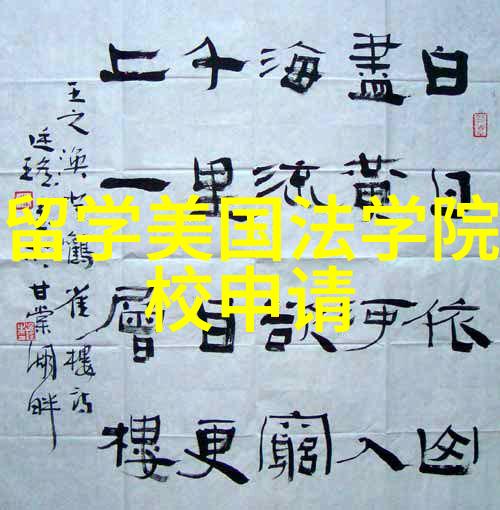 白日依山
盡黄河入
海流欲窮
千里目更
上一層樓
王之渙登鸛雀樓詩
甘棠湖畔
留学美国法学院
校申请